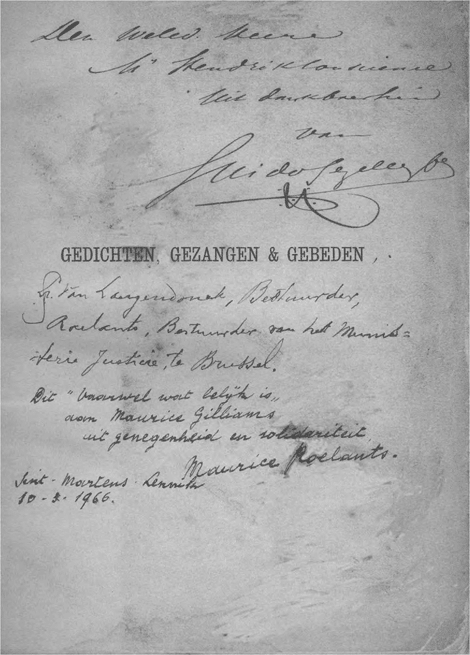 Den Weled. Heere
Mr Hendrik Conscience
Uit dankbaarheid
van
Guido Gezelle
GEDICHTEN, GEZANGEN & GEBEDEN
Pr. Van Langendonck, Bestuurder,
Roelants, Bestuurder van het Minis=
terie Justicie, te Brussel.
Dit "Vaarwel wat lelijk is"
aan Maurice Gilliams
uit genegenheid en solidariteit
Maurice Roelants.
Sint-Martens-Lennik
10-3-1966.